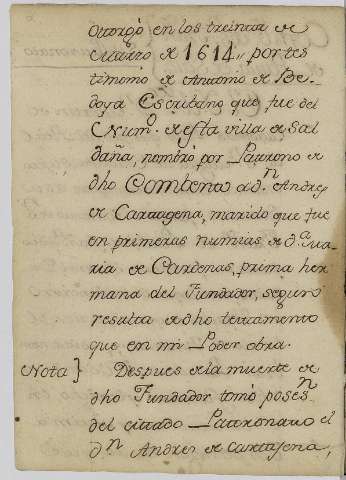 otorgó en los treinta de
Marzo de 1614,, por tes
timonio de Antonio de Be-
doya Escribano que fue del
Num.o de esta villa de Sal
daña, nombró por Patrono de
dho Combento a d.n Andres
de Cartagena, marido que fue
en primeras numias de d.a Ma
ria de Cardenas, prima her
mana del Fundador, segun
resulta de dho testamento
que en mi Poder obra.
Nota} Despues de la muerte de
dho Fundador tomó poses.n
del citado Patronato el
d.n Andres de Cartagena,